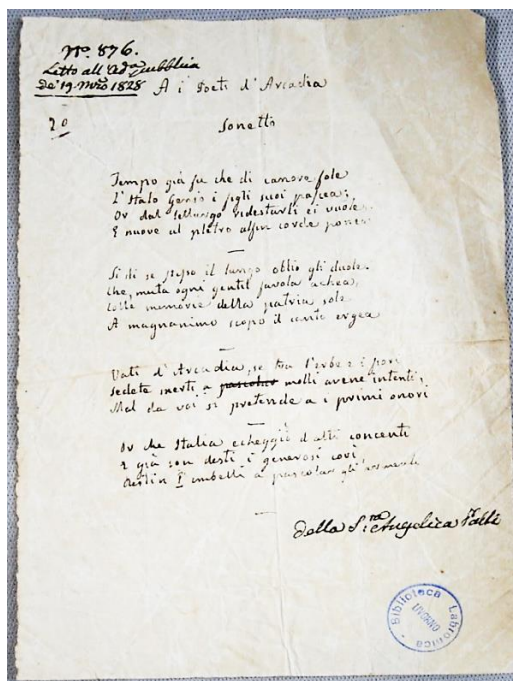 N.º 876.
Letto all'Ad.ª pubblica
de' 19. Mzo 1828
20
A i Poeti d'Arcadia
Sonetto
Tempo già fu che di canore fole
L'Italo Genio i figli suoi pascea;
Or dal letargo ridestarli ei vuole
E nuove al plettro alfin corde ponea
Sì di se stesso il lungo oblio gli duole
Che, muta ogni gentil favola achea,
Colle memorie della patria sole
A magnanimo scopo il canto ergea
Vati d'Arcadia, se tra l'erbe e i fiori
sedete inerti, a molli avene intenti,
Mal da voi si pretende a i primi onori
Or che Italia echeggiò d'alti concenti
E già son desti i generosi cori
Restin gl'imbelli a pascolar gli armenti
della S.ra Angelica Palli
Biblioteca Labronica
LIVORNO